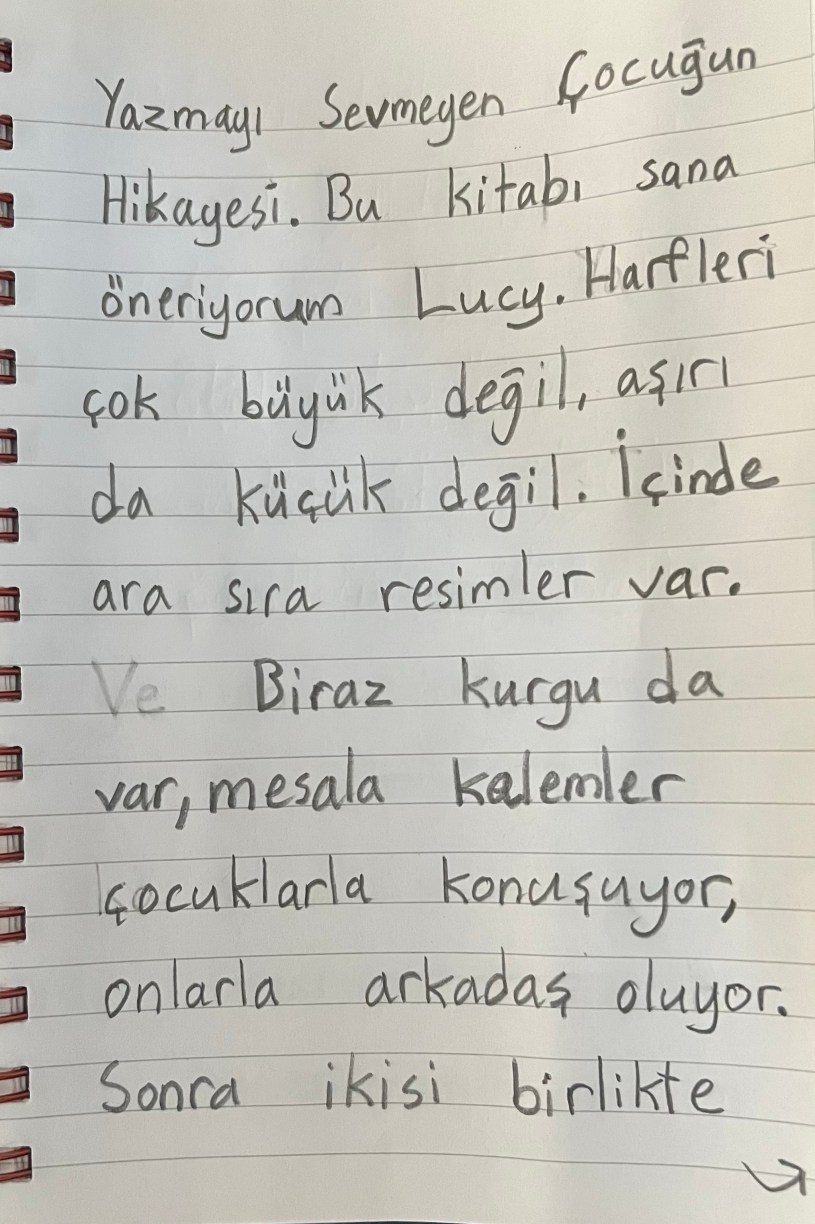 Yazmayı Sevmeyen Çocuğun
Hikayesi. Bu kitabı sana
öneriyorum Lucy. Harfleri
çok büyük değil, aşırı
da küçük değil. İçinde
ara sıra resimler var.
Ve Biraz kurgu da
var, mesala kalemler
çocuklarla konuşuyor,
onlarla arkadaş oluyor.
Sonra ikisi birlikte